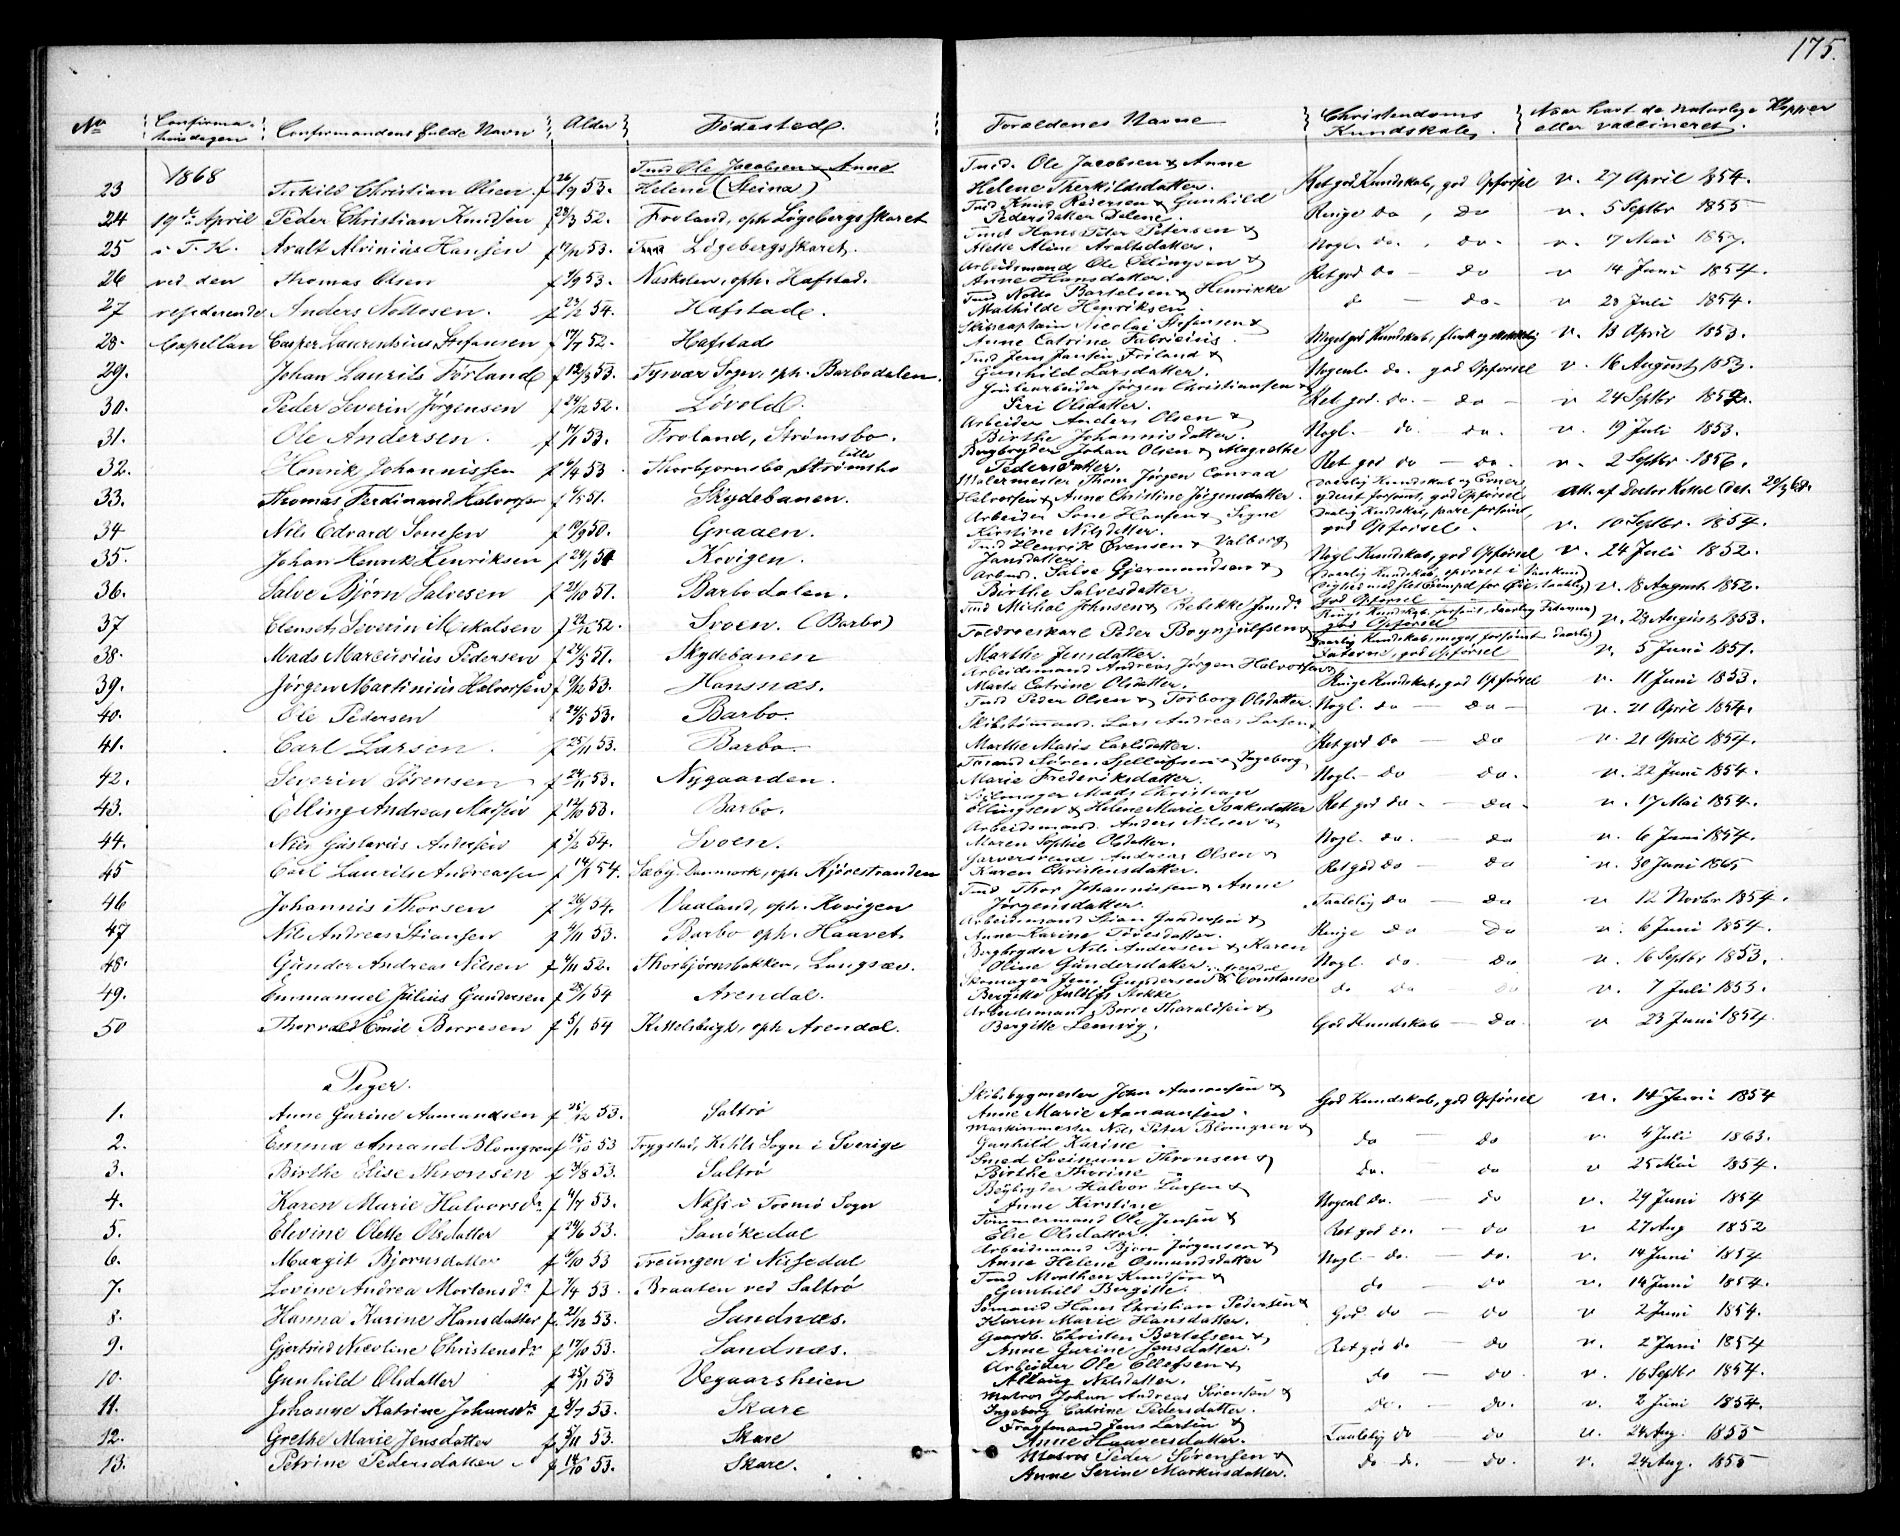 175.
No Confirmationsdagen Confirmandens fulde Navn Alder Fødested. Forældrenes Navne Christendoms Kundskab. Naar havt de naturlige Kopper eller vaccineret.
1868
23 Terkild Christian Olsen f 26/9 53. Helene (Steina) Tmd. Ole Jacobsen & Anne Helene Therkildsdatter. Ret god Kundskab, god Opførsel v. 27 April 1854.
24 19de April Peder Christian Knudsen Froland, oph. Løgebergsskaret Tmd Knud Reiersen & Gunhild Pedersdatter Ringe do, do v. 5 Septbr 1855
25 i T. K. Aralt Alvinius Hansen Løgebergsskaret. Tmd Hans Peter Petersen & Alette Aline Araltsdatter. Nogl. do, do. v. 7 Mai 1857.
26 ved den Thomas Olsen f 7/9 53. Naskilen, oph. Hafstad. Arbeidsmand Ole Ellingsen & Anne Hansdatter. Ret god do - do v 14 Juni 1854.
27 residerende Anders Nottosen. f 27/2 54. Hafstad. Tmd Notto Bartelsen & Henrikke Mathilde Henriksen do - do. v 20 Juli 1854.
28. Capellan Casper Laurentsius Stefansen f 17/7 52. Hafstad Skibscaptain Nicolai Stefansen & Anne Catrine Fabricius. Meget god Kundskab, v. 13 April 1853.
29. Johan Laurits Førland f 12/3 53. Tysvær Sogn, oph. Barbodalen. Tmd Jens Jansen Friland & Gunhild Larsdatter. Nogenl. do. god Opførsel v. 16 August 1853.
30. Peder Severin Jørgensen f 24/12 52. Løvold. Grubearbeider Jørgen Christiansen & Siri Olsdatter. Ret god. do. - do - v 24 Septbr
31. Ole Andersen. f 17/11 53. Froland, Strømsbo. Arbeider Anders Olsen & Birthe Johannisdatter. Nogl. - do. do. v. 19 Juli 1853.
32. Henrik Johannissen f 6/4 53 Thorbjørnsbo, Lille Strømsbo Bugbryder Johan Olsen & Magrethe Pedersdatter. Ret god do - do. v. 2 Septbr 1856.
33. Thomas Ferdinand Halvorsen f 4/5 51. Skydebanen. Malermester Thom Jørgen Conrad Halvorsen & Anne Christine Jørgensdatter. Daarlig Kundskab og Evner, yderst forsømt, god Opførsel Att. af Doctor Kittel
34 Nils Edvard Sonesen f 19/9 50. Graaen. Arbeider Sone Hansen & Signe Kirstine Nilsdatter. Daarlig Kundskab, god Opførsel. v. 10 Septbr. 1854.
35. Johan Henrik Henriksen Kvigen. Tmd Henrik Evensen & Valborg Jansdatter. Nogl Kundskab, god Opførsel v. 24 Juli 1852.
36. Salve Bjørn Salvesen f 21/10 51. Barbodalen. Arbmd. Salve Gjermundsen & Birthe Salvesdatter. Daarlig Kundskab, god Opførsel v. 18 August 1852.
37 Clemet Severin Mikalsen Svoen. (Barbo) Tmd Michal Johnsen & Rebekke Jensd. Ringe Kundskab, god Opførsel v. 23 August 1853.
38. Mads Marcusius Pedersen f 24/5 51. Skydebanen Peder Boynjulfsen & Marthe Jensdatter. Daarlig Kundskab, meget forsømt, god Opførsel v. 5 Juni 1851.
39. Jørgen Martinius Halvorsen f 9/12 53. Hansnæs. Arbeidsmand Andreas Jørgen Halvorsen & Marte Catrine Olsdatter. Ringe Kundskab, god Opførsel v. 11 Juni 1853.
40. Ole Pedersen 24/5 53. Barbo. Tmd Peder Olsen & Torborg Olsdatter. Nogl. do - do - v. 21 April 1854.
41. Carl Larsen. f 25/11 53. Barbo. Skibstømmand. Lars Andreas Larsen & Marthe Maria Carlsdatter. Ret god do - do v. 21 April 1854.
42. Severin Sørensen f 24/11 53. Nygaarden. Tmand Søren Gjellufsen & Ingeborg Marie Frederiksdatter. Nogl. - do do. v. 22 Juni 1854.
43. Elling Andreas Madsen f 12/10 53. Barbo. Mads Christian Ellingsen & Helene Marie Isaksdatter Ret god do - do - v. 17 Mai 1854.
44. Nils Gustavus Andersen f 5/2 54. Svoen. Arbeidsmand. Anders Nilsen & Maren Sophie Olsdatter. Nogl. do. - do v. 6 Juni 1854.
45 Carl Laurits Andreassen f 14/1 54. Sæby Danmark, oph. Kjørestranden Garversvend Andreas Olsen & Karen Christensdatter. Ret god do - do v. 30 Juni 1865
46 Johannis Thorsen f 26/1 54. Vaaland, oph. Kvigen Tmd Thor Johannissen & Anne Jørgensdatter. Taalelig do - do v 12 Novbr 1854.
47 Nils Andreas Stiansen f 4/11 53. Barbo oph. Haavet. Arbeidsmand Stian Gundersen & Anne Karine Tovesdatter. Ringe do do v. 6 Juni 1854.
48. Gunder Andreas Nilsen f 4/11 52. Thorbjørnsbakken, Langsæv. Bugbryder Nils Andersen & Karen Oline Gundersdatter. Nogl. do. do v. 16 Septbr 1853.
49. Emmanuel Julius Gundersen f 28/1 54 Arendal. Skomager Jens Gundersen & Constanse Bergitte do do do v. 7 Juli 1855.
50 Thorvald Emil Borresen f 5/1 54 Kittelsbugt, oph Arendal. Arbeidsmand Borre Tharaldsen & Bergitte Lemvig. God Kundskab - do. v 23 Juni 1854.
Piger.
1. Anne Gurine Aamundsen f 25/12 53. Saltrø Skibsbygmester John Aamundsen & Anne Marie Aanundsen. God Kundskab, god Opførsel v. 14 Juni 1854
2. Emma Amand Blomgren f 15/10 53 Trygstad, Kihls Sogn i Sverige Maskinmester Nils Peter Blomgren & Gunhild Karine do - do v. 4 Juli 1863.
3. Birthe Elise Thronsen f 31/8 53. Saltrø Smed Sveinum Thronsen & Birthe Thorine do. do v 25 Mai 1854.
4. Karen Marie Halvorsdr. f 4/7 53. Næs i Tromø Sogn Bugbryder Halvor Larsen & Anne Kirstine Nogenl do. - do v. 29 Juni 1854
5. Elevine Olette Olsdatter f 24/6 53. Sandkedal Tømmermand Ole Jensen & Else Olsdatter. Ret god do. - do v 27 Aug 1852
6. Margit Bjørnsdatter f 6/10 53 Treungen i Nissedal Arbeidsmand Bjørn Jørgensen & Anne Helene Osmundsdatter Nogl. - do. - do. v. 14 Juni 1854
7. Lovine Andrea Mortensdr. f 7/4 53. Braaten ved Saltrø Tmd Morthen Knudsen & Gunhild Bergitte. do - do v. 14 Juni 1854.
8. Hanna Karine Hansdatter f. 21/12 53. Sandnæs. Sømand Hans Christian Pedersen & Karen Marie Hansdatter. God. do - do v 2 Juni 1854.
9. Gjertrud Nicoline Christensdr. f 17/10 53. Sandnæs. Gaardb. Christen Bertelsen & Anne Gurine Jensdatter. Ret god do - do v. 2 Juni 1854
10. Gunhild Olsdatter f 25/11 53 Vegaarsheien Arbeider Ole Ellefsen & Aslaug Nilsdatter. do - do. v. 16 Septbr 1854.
11. Johanne Katrine Johansdr. f 8/7 53. Skare Matros Johan Andreas Sørensen & Ingeborg Catrine Pedersdatter. do. - do. v. 2 Juni 1854.
12. Grethe Marie Jensdatter f 5/11 53. Skare Jens Larsen & Anne Haaversdatter. Taalelig do do v. 24 Aug. 1855
13. Petrine Pedersdatter f 14/10 53. Skare. Matros Peder Sørensen & Anne Serine Markusdatter. do do. - do. v. 24 Aug. 1855